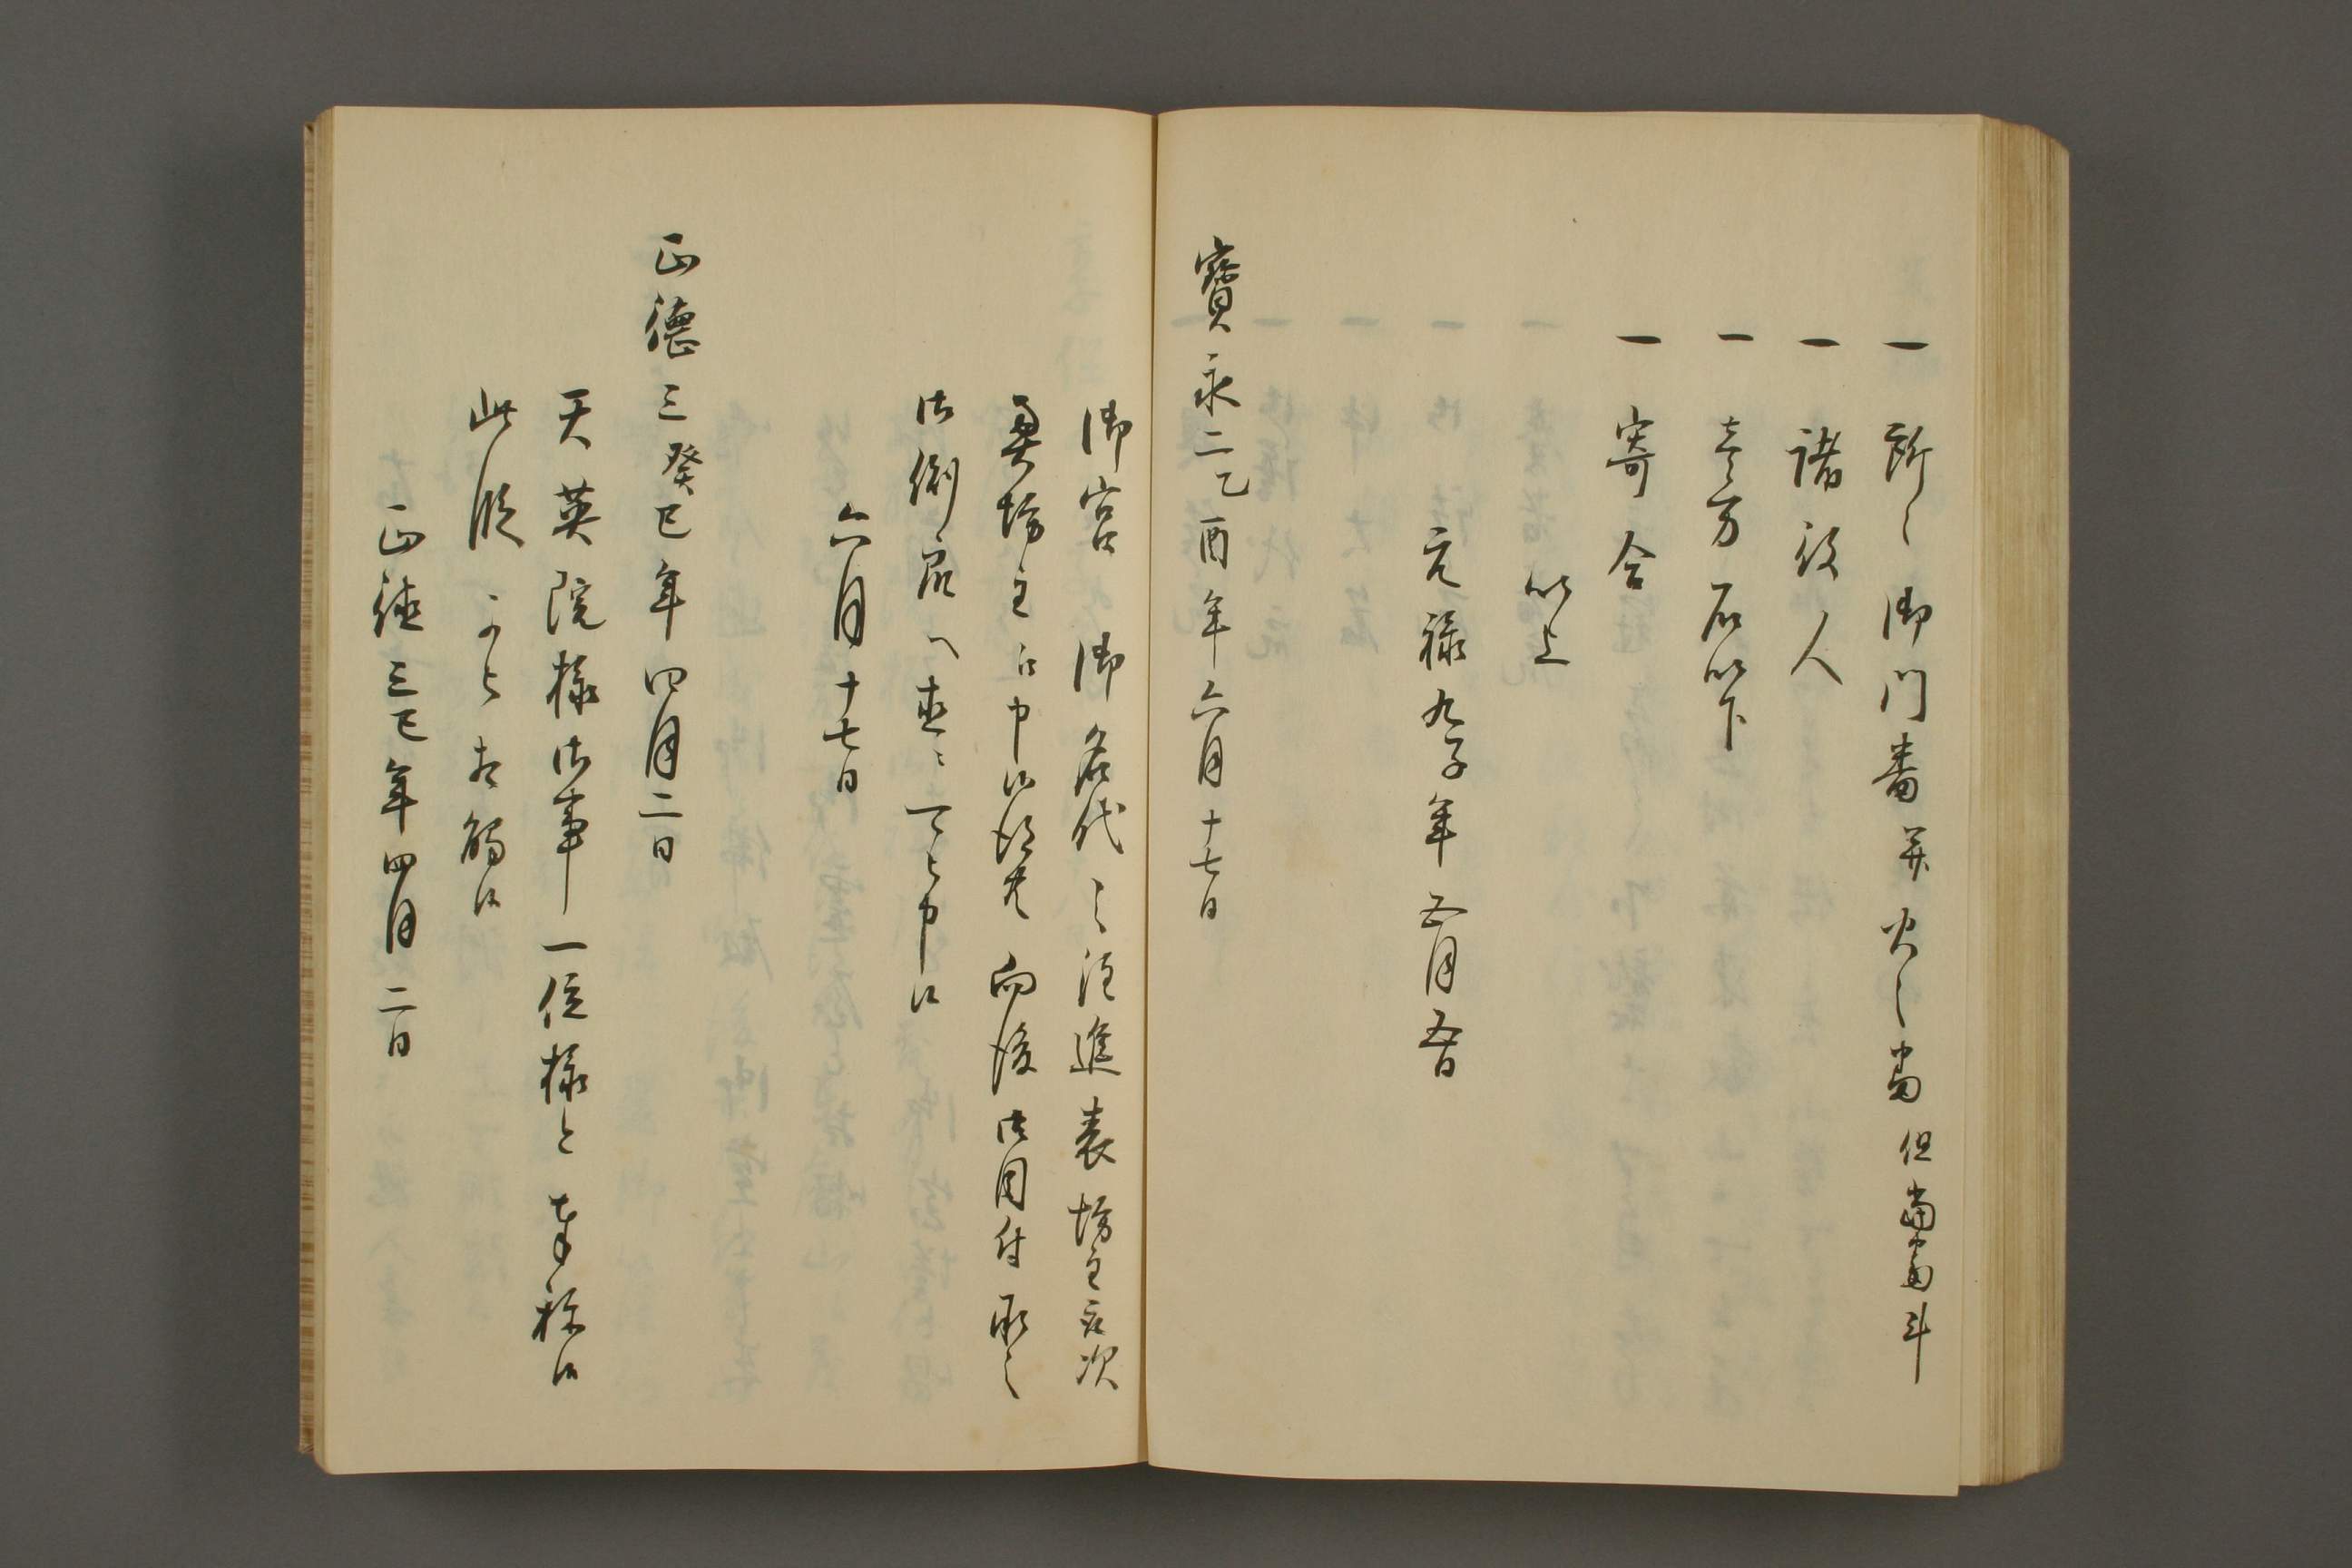 一 所々御門番并火之番 但当番斗
一 諸役人
一 壱万石以下
一 寄合
以上
元禄九子年五月五日
寶永二乙酉年六月十七日
御宮 御名代之注進表坊主衆次
奥坊主 申候得共向後御目付承之
御側衆へ直ニ可申候
六月十七日
正徳三癸巳年四月二日
天英院様御事一位様と奉称候
此段 可相触候
正徳三巳年四月二日